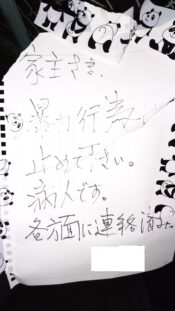 家主さま、
暴力行為は
止めて下さい。
病人です。
各方面に連絡済み。